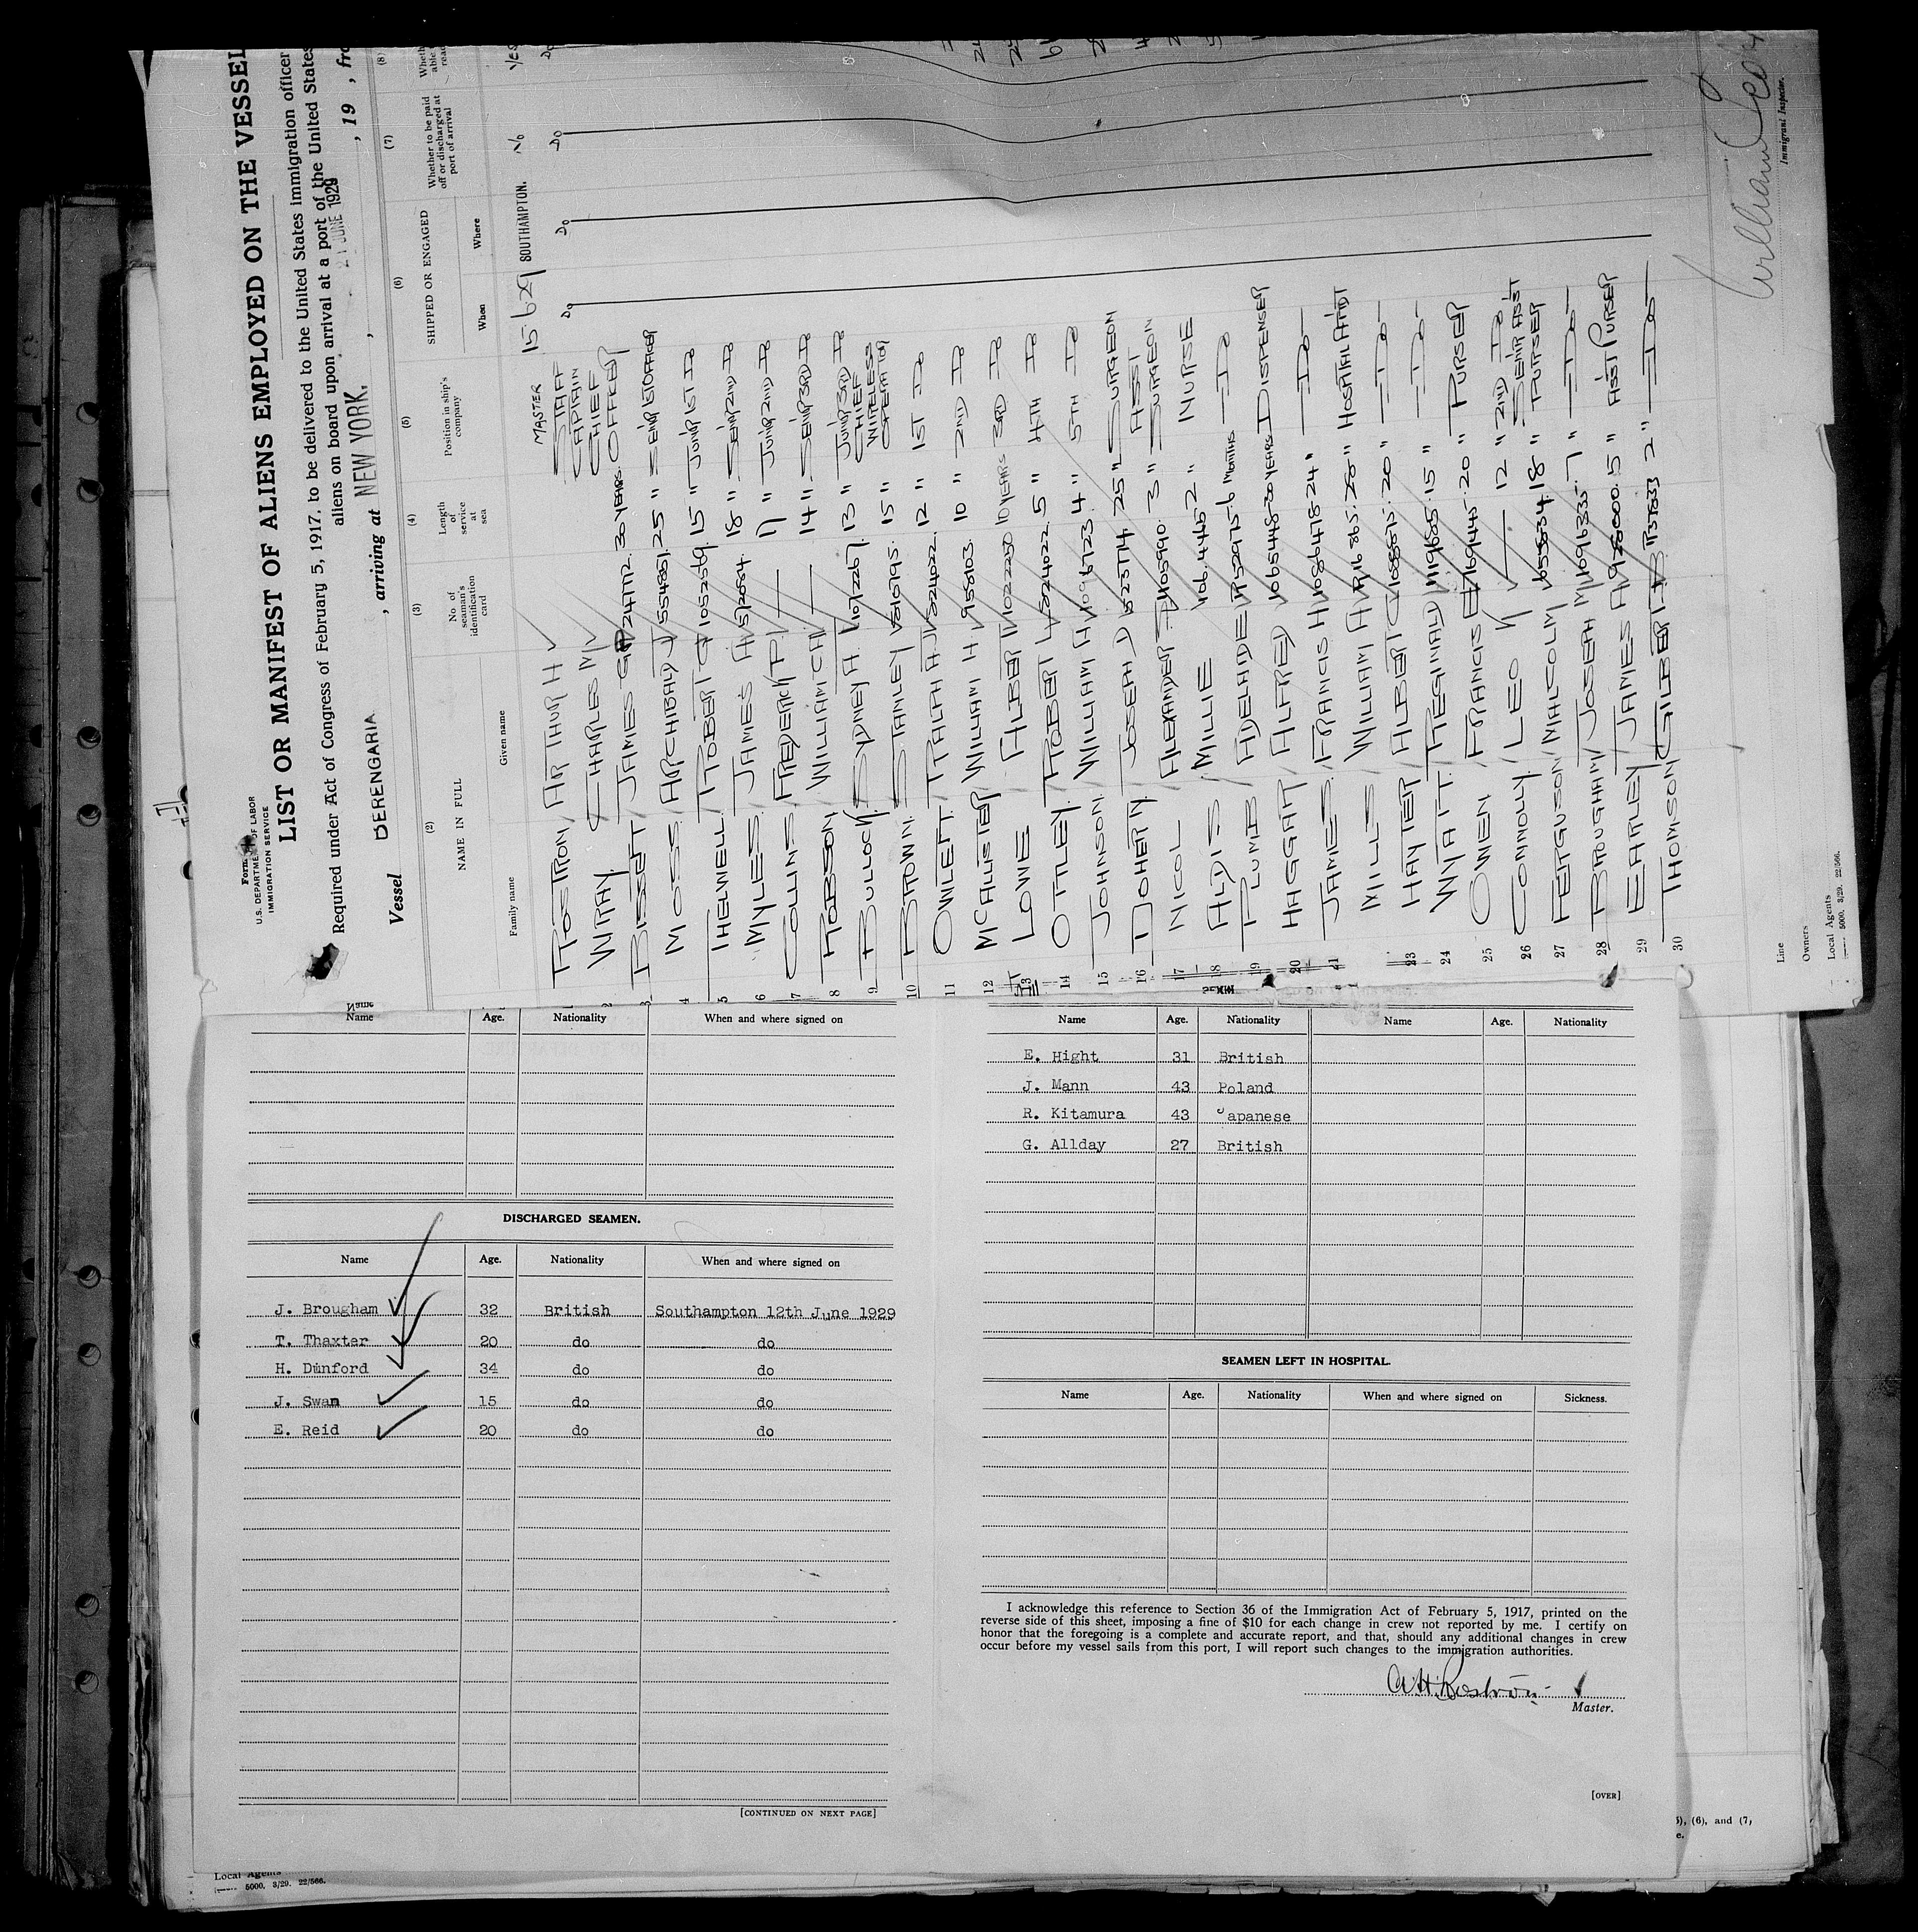 Form
U.S. DEPARTMENT OF LABOR
IMMIGRATION SERVICE
LIST OR MANIFEST OF ALIENS EMPLOYED ON THE VESSEL
Required under Act of Congress of February 5, 1917, to be delivered to the United States immigration officer
aliens on board upon arrival at a port of the United States
21 JUNE 1929
Vessel BERENGARIA, arriving at NEW YORK, , 19 , fro
(2) (3) (4) (5) (6) (7) (8)
NAME IN FULL
Family name Given name
No. of seaman's identification card
Length of service at sea
Position in ship's company
SHIPPED OR ENGAGED
When Where
Whether to be paid off or discharged at port of arrival
15-6-29 SOUTHAMPTON. No Yes
Do Do Do Do
1 ROSTRON ARTHUR H MASTER
2 WRAY CHARLES M STAFF CAPTAIN
3 BISSETT JAMES G P 241772 30 YEARS CHIEF OFFICER
4 MOSS ARCHIBALD J 554887 25 " SENR 1ST OFFICER
5 THELWELL ROBERT G 1052569 15 " JUNR 1ST DO
6 MYLES JAMES A 18 " SENR 2ND DO
7 COLLINS FREDERICK P 11 " JUNR 2ND DO
8 ROBSON WILLIAM C H 14 " SENR 3RD DO
9 BULLOCK SYDNEY A 1107267 13 " JUNR 3RD DO
10 BROWN STANLEY 15 " CHIEF WIRELESS OPERATOR
11 OWLETT RALPH A J 12 " 1ST DO
12 MCALLISTER WILLIAM H 958103 10 " 2ND DO
13 LOWE ALBERT 1022250 10 YEARS 3RD DO
14 OTTLEY ROBERT L 5 " 4TH DO
15 JOHNSON WILLIAM H 1096723 4 " 5TH DO
16 DOHERTY JOSEPH D 523774 25 " SURGEON
17 NICOL ALEXANDER 1105990 3 " ASST SURGEON
18 ALDIS MILLIE 2 " NURSE
19 PLUMB ADELAIDE 6 MONTHS DO
20 HAGGAR ALFRED 1065448 30 YEARS DISPENSER
21 JAMES FRANCIS H 1086478 24 " DO
MILLS WILLIAM A 28 " HOSPITAL ATTDT
23 HAYTER ALBERT C 1088875 20 " DO
24 WYATT REGINALD 15 " DO
25 OWEN FRANCIS E 769445 20 " PURSER
26 CONNOLLY LEO 12 " 2ND DO
27 FERGUSON MALCOLM 18 " SENR ASST PURSER
28 BROUGHAM JOSEPH M 1096335 7 " DO
29 EARLEY JAMES A 928000 5 " ASST PURSER
30 THOMSON GILBERT 2 " DO
Immigrant Inspector.
Line
Owners
Local Agents
5000. 3/29. 22/566.
Name Age. Nationality When and where signed on
DISCHARGED SEAMEN.
Name Age. Nationality When and where signed on
J. Brougham 32 British Southampton 12th June 1929
T. Thaxter 20 do do
H. Dunford 34 do do
J. Swan 15 do do
E. Reid 20 do do
[CONTINUED ON NEXT PAGE]
Name Age. Nationality Name Age. Nationality
E. Hight 31 British
J. Mann 43 Poland
R. Kitamura 43 Japanese
G. Allday 27 British
SEAMEN LEFT IN HOSPITAL.
Name Age. Nationality When and where signed on Sickness.
I acknowledge this reference to Section 36 of the Immigration Act of February 5, 1917, printed on the
reverse side of this sheet, imposing a fine of $10 for each change in crew not reported by me. I certify on
honor that the foregoing is a complete and accurate report, and that, should any additional changes in crew
occur before my vessel sails from this port, I will report such changes to the immigration authorities.
A.H. Rostron
Master.
[OVER]
5), (6), and (7,
e.
Local Agents
5000. 3/29. 22/566.